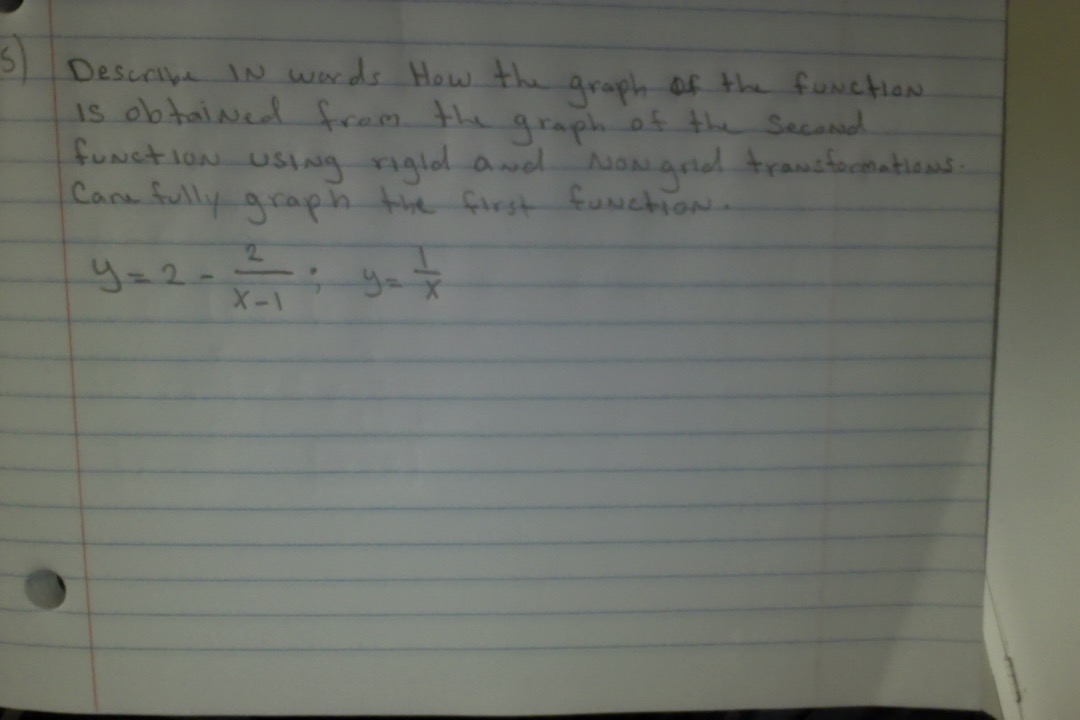 5) Describe IN words How the graph of the function
is obtained from the graph of the second
function using rigid and Nongrid transformations.
Carefully graph the first function.
y = 2 - \frac{2}{x-1} ; y = \frac{1}{x}